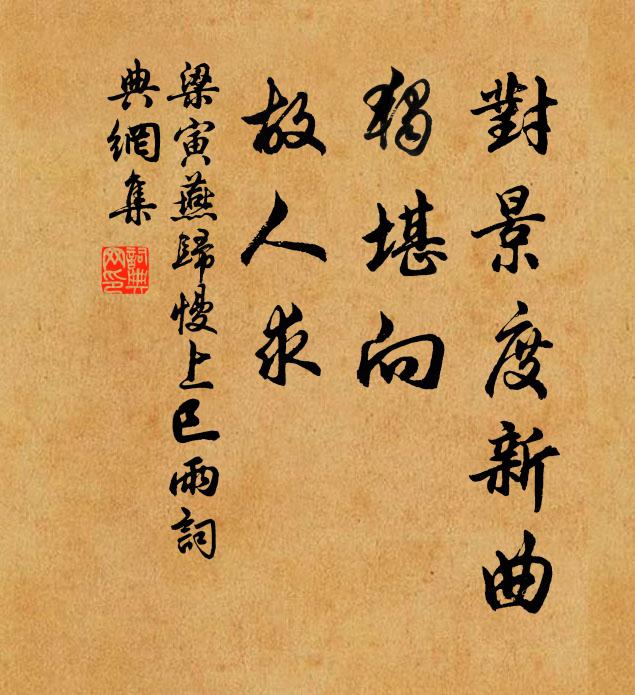 對景度新曲
獨堪向
故人求
梁寅燕歸慢上巳雨詞
典網集
詞典網印